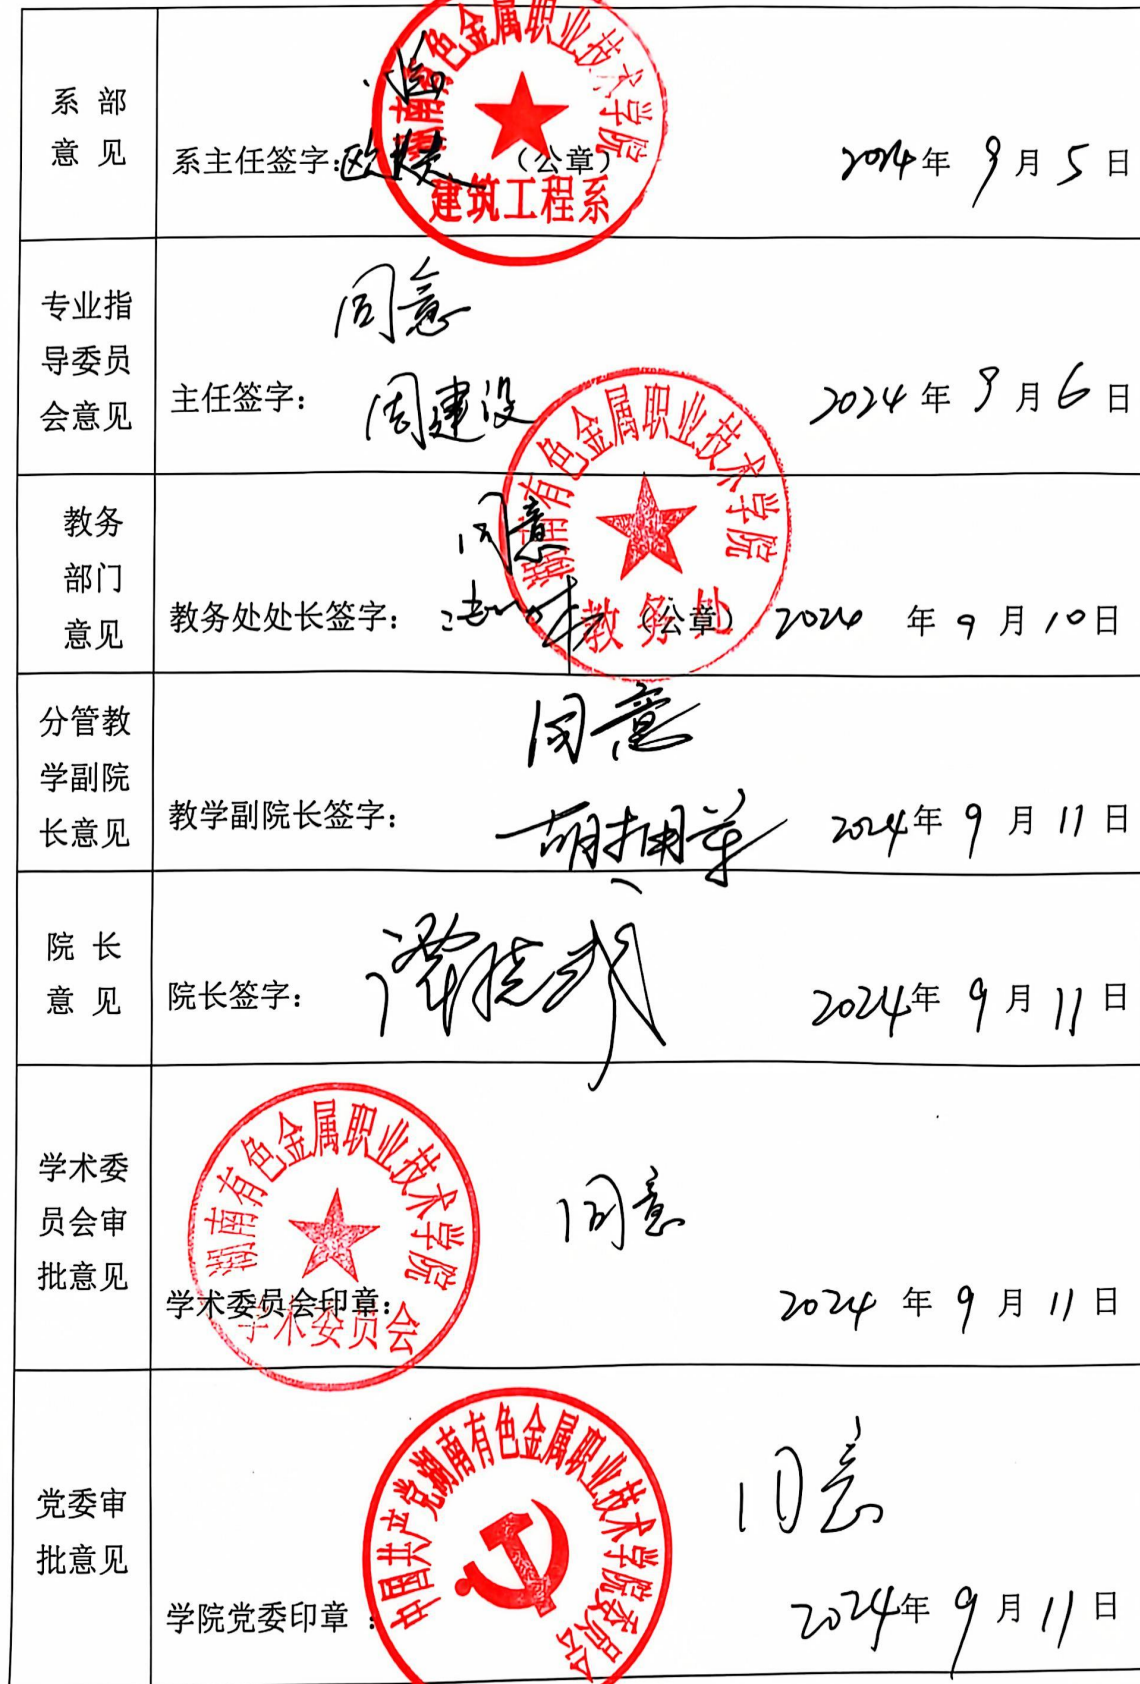 系 部
意 见
湖南有色金属职业技术学院
建筑工程系
系主任签字:
（公章）
2024年 9月 5 日
专业指
导委员
会意见
同意
主任签字：
周建设
2024年 9月 6 日
教务
部门
意见
同意
湖南有色金属职业技术学院
教务处
教务处处长签字：
（公章）
2024 年 9 月 10日
分管教
学副院
长意见
同意
教学副院长签字：
胡拥军
2024年 9 月 11 日
院 长
意 见
院长签字：
谭晓武
2024年 9 月 11 日
学术委
员会审
批意见
湖南有色金属职业技术学院
学术委员会
同意
学术委员会印章：
2024 年 9 月 11 日
党委审
批意见
中国共产党湖南有色金属职业技术学院委员会
同意
学院党委印章：
2024年 9 月 11 日